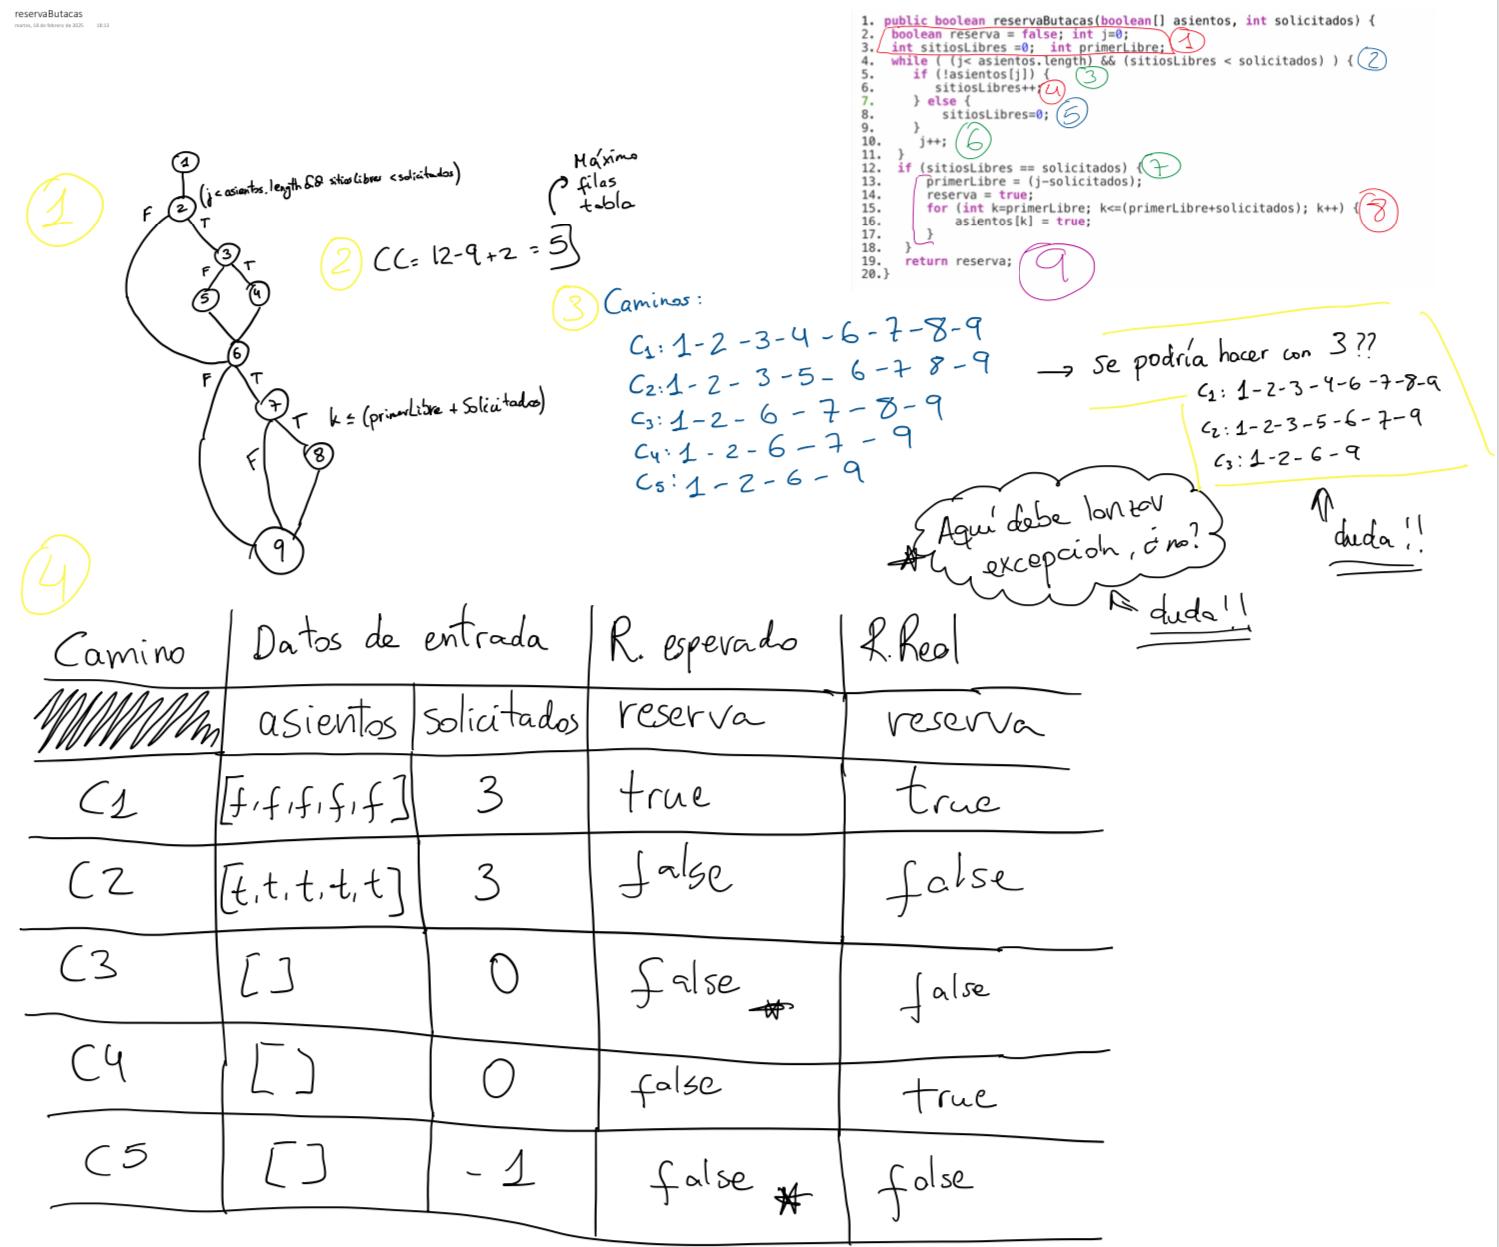 reservaButacas
martes, 18 de febrero de 2025 18:13
1. public boolean reservaButacas(boolean[] asientos, int solicitados) {
2. boolean reserva = false; int j=0;
3. int sitiosLibres =0; int primerLibre;
1
4. while ( (j< asientos.length) && (sitiosLibres < solicitados) ) {
2
5. if (!asientos[j]) {
3
6. sitiosLibres++;
4
7. } else {
8. sitiosLibres=0;
5
9. }
10. j++;
6
11. }
12. if (sitiosLibres == solicitados) {
7
13. primerLibre = (j-solicitados);
14. reserva = true;
15. for (int k=primerLibre; k<=(primerLibre+solicitados); k++) {
8
16. asientos[k] = true;
17. }
18. }
19. return reserva;
9
20.}
1
1
(j < asientos.length && sitiosLibres < solicitados)
2
F
T
3
F
T
5
4
6
F
T
7
T
k ≤ (primerLibre + Solicitados)
F
8
9
2
CC = 12-9+2 = 5
Máximo
filas
tabla
3
Caminos:
C1: 1-2-3-4-6-7-8-9
C2: 1-2-3-5-6-7 8-9
C3: 1-2-6-7-8-9
C4: 1-2-6-7-9
C5: 1-2-6-9
→ Se podría hacer con 3??
C1: 1-2-3-4-6-7-8-9
C2: 1-2-3-5-6-7-9
C3: 1-2-6-9
duda!!
Aquí debe lanzar
excepción, ó no?
duda!!
4
Camino
Datos de entrada
R. esperado
R. Real
asientos
solicitados
reserva
reserva
C1
[f,f,f,f,f]
3
true
true
C2
[t,t,t,t,t]
3
false
false
C3
[]
0
false
false
C4
[]
0
false
true
C5
[]
-1
false
false